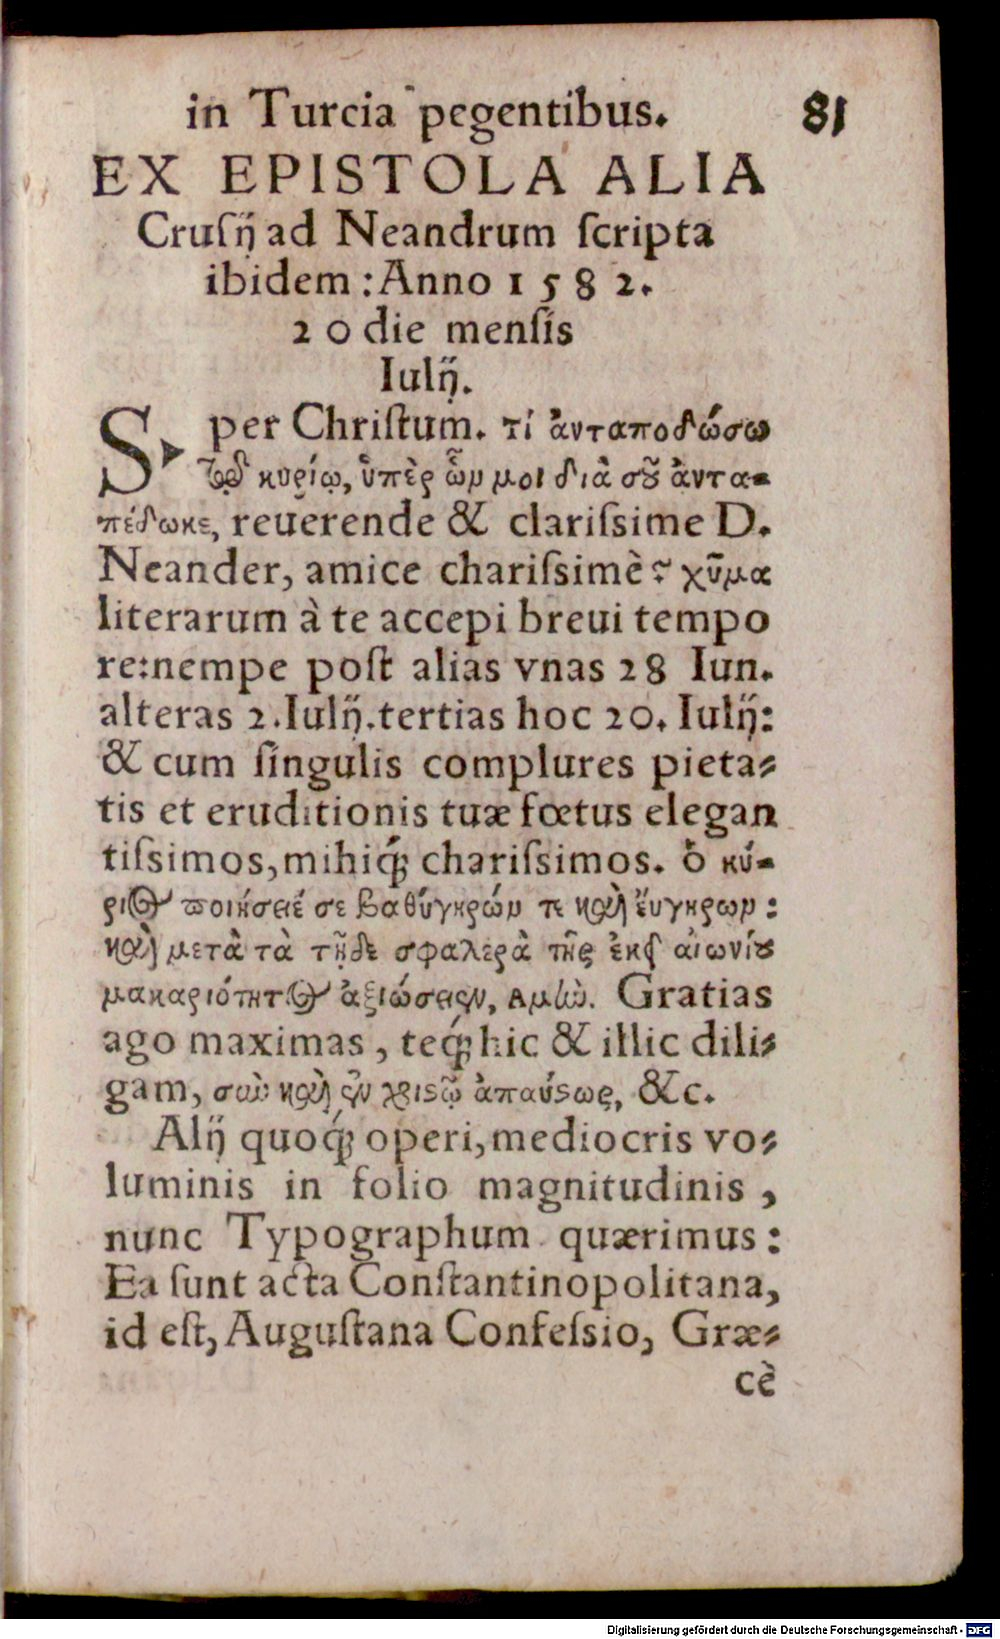 in Turcia pegentibus. 81
EX EPISTOLA ALIA
Cruſij ad Neandrum ſcripta
ibidem: Anno 1582.
20 die menſis
Iulij.
S. per Chriſtum. τί ἀνταποδώσω
τῷ κυρίῳ, ὑπὲρ ὧν μοι διὰ σοῦ ἀντα-
πέδωκε, reuerende & clariſsime D.
Neander, amice chariſsimè? χῦμα
literarum à te accepi breui tempo
re: nempe poſt alias vnas 28 Iun.
alteras 2. Iulij. tertias hoc 20. Iulij:
& cum ſingulis complures pieta-
tis et eruditionis tuæ fœtus elegan
tiſsimos, mihiq́; chariſsimos. ὁ κύ-
ριος ποιήσειέ σε βαθύγηρών τε καὶ ἔυγηρων:
καὶ μετὰ τὰ τῇδε σφαλερὰ τῆς ἐκεῖ αἰωνίου
μακαριότητος ἀξιώσειεν, ἀμὼ. Gratias
ago maximas, teq́; hic & illic dili-
gam, σὺν καὶ ἐν χριστῷ ἀπαύστως, &c.
Alij quoq́; operi, mediocris vo-
luminis in folio magnitudinis,
nunc Typographum quærimus:
Ea ſunt acta Conſtantinopolitana,
id eſt, Auguſtana Confeſsio, Græ-
cè
Digitalisierung gefördert durch die Deutsche Forschungsgemeinschaft - DFG